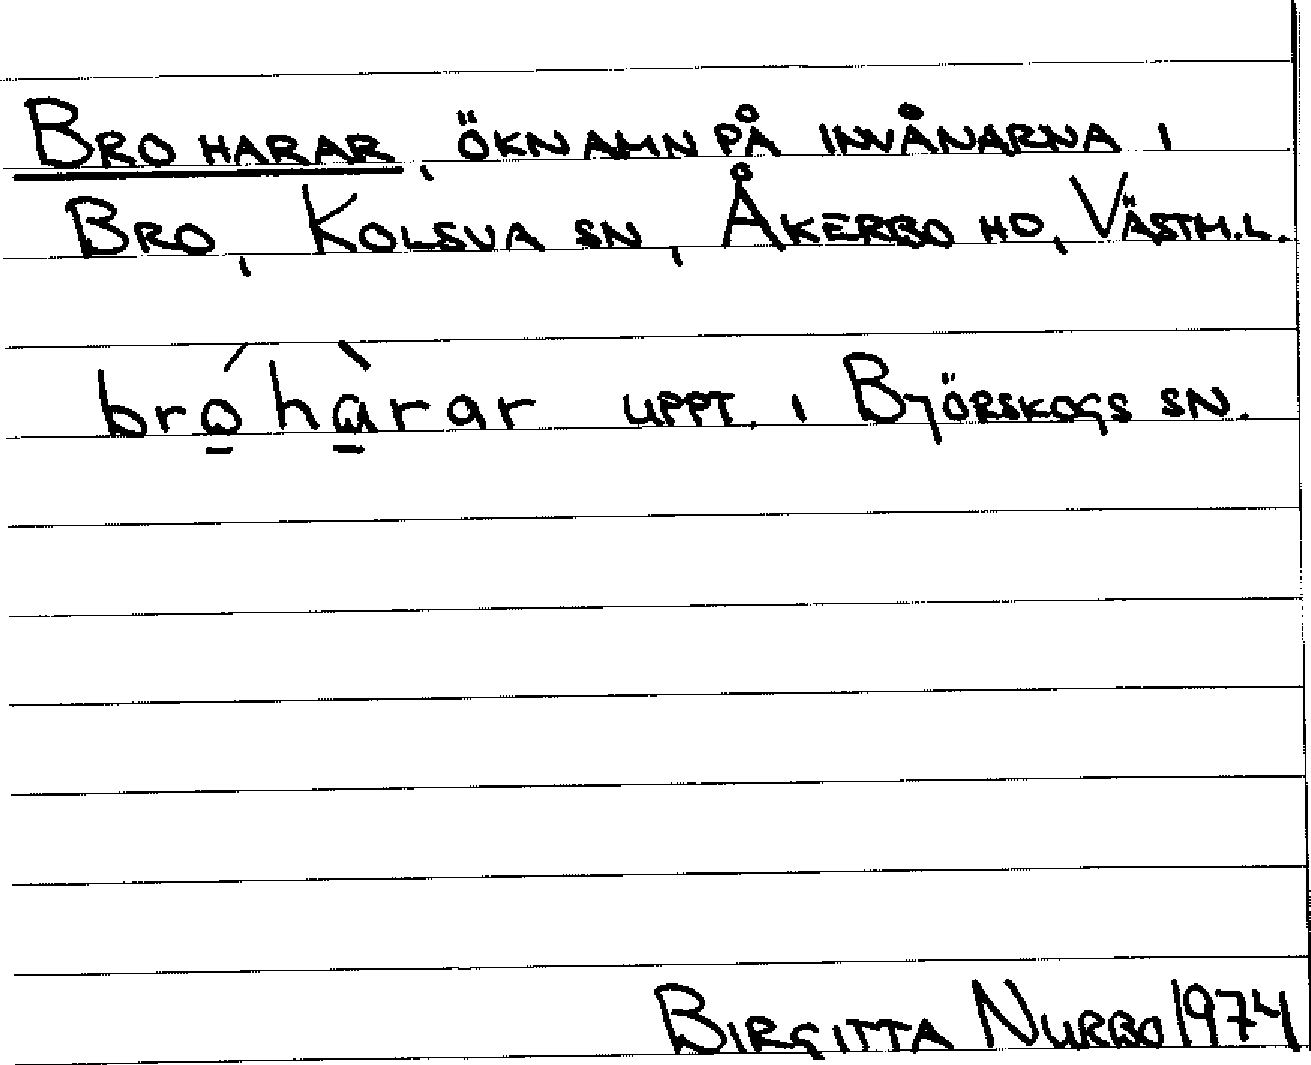 BRO HARAR, ÖKNAMN PÅ INVÅNARNA I
BRO, KOLSVA SN, ÅKERBO HD, VÄSTM.L.
bró̱hà̱rar UPPT. I BJÖRSKOGS SN.
BIRGITTA NURBO 1974